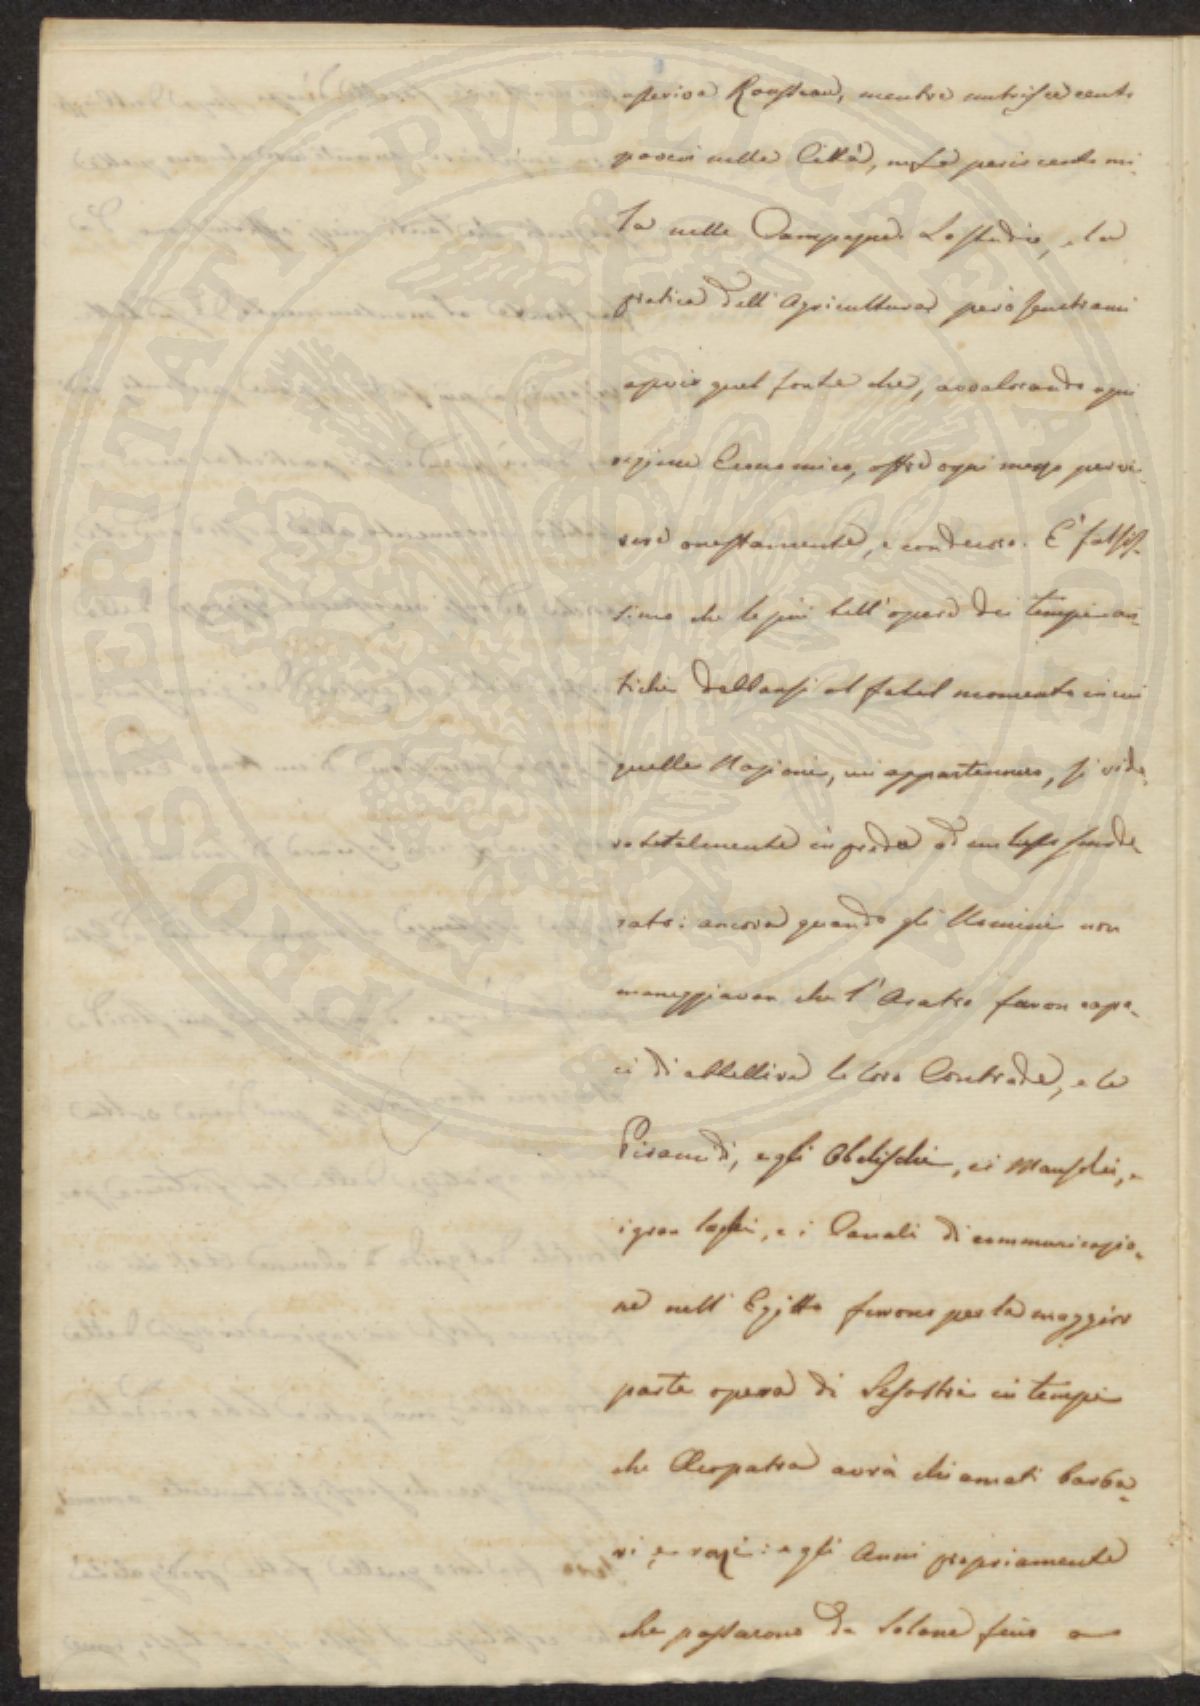 asseriva Rousseau, mentre nutrisce cento
poveri nelle Città, ne fà perir cento mi-
la nelle Campagne. Lo studio, e la
pratica dell'Agricoltura però
aprir quel fonte che, avvalorando ogni
regime Economico, offre ogni mezzo per vi-
vere onestamente, e con decoro. E' falsis-
simo che le più bell'opere dei tempi an-
tichi debbansi al fatal momento in cui
quelle Nazioni, cui appartennero, si vide-
ro totalmente in preda ad un lusso smode-
rato: ancora quando gli Uomini non
maneggiavan che l'Aratro furon capa-
ci di abbellire le loro Contrade, e le
Piramidi, e gli Obelischi, ei Mausolei, e
i gran laghi, e i Canali di communicazio-
ne nell'Egitto furono per la maggior
parte opera di Sesostri in tempi
che Cleopatra avrà chiamati barba-
ri e rozzi: e gli Anni propriamente
che passarono da Solone fino a
PROSPERITATI PVBLICAE AVGENDAE